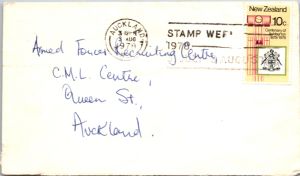 AUCKLAND
3 AUG
1978
STAMP WEE
1978
AUGUS
New Zealand
10c
Centenary of
Ashburton
1878-1978
Armed Forces Recruiting Centre,
C.M.L. Centre,
Queen St,
Auckland.